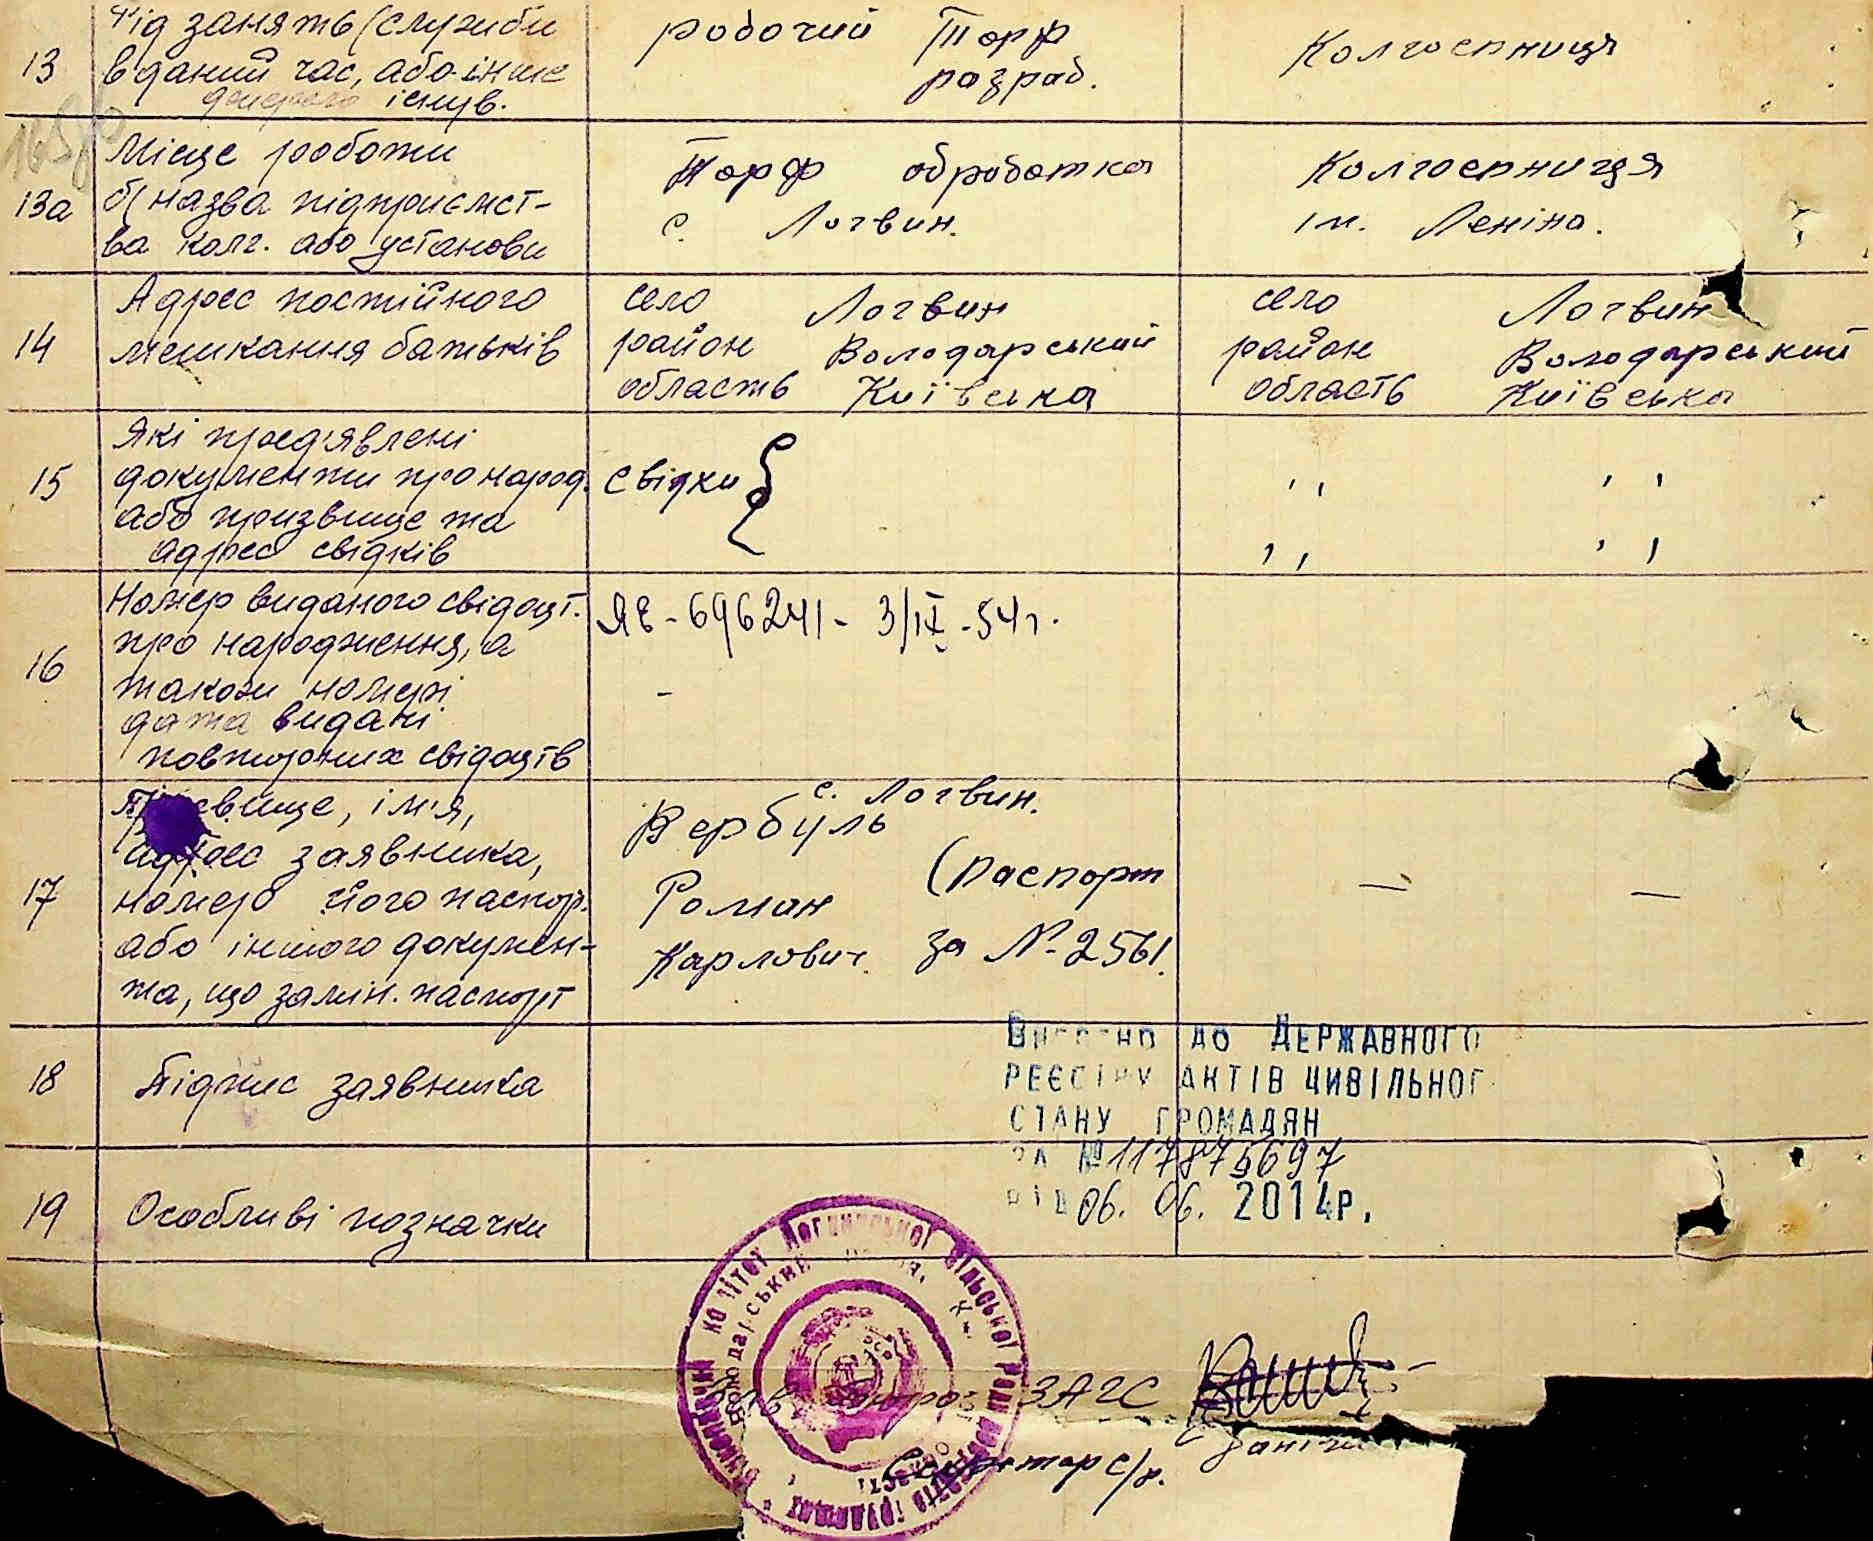 13
Рід занять (служби
в даний час, або інше
джерело існув.
робочий Торф
разраб.
Колгоспниця
13а
Місце роботи
б/ назва підприємст-
ва колг. або установи
Торф обработка
с. Логвин.
Колгоспниця
ім. Леніна.
14
Адрес постійного
мешкання батьків
село Логвин
район Володарський
область Київська
село Логвин
район Володарський
область Київська
15
Які пред'явлені
документи про народ.
або призвище та
адрес свідків
свідки {
,, ,,
,, ,,
16
Номер виданого свідоцт.
про народження, а
також номері
дата видані
повторних свідоцтв
ЯЕ - 696241 - 3/IX - 54 г.
-
17
Прізвище, ім'я,
адрес заявника,
номер його паспор.
або іншого докумен-
та, що замін. паспорт
с. Логвин.
Вербуль
Роман (Паспорт
Карлович. за № 2561.
— —
18
Підпис заявника
19
Особливі позначки
Внесено до Державного
реєстру актів цивільног
стану громадян
за № 117875697
від 06. 06. 2014р.
ЗАГС
Секретар с/р.